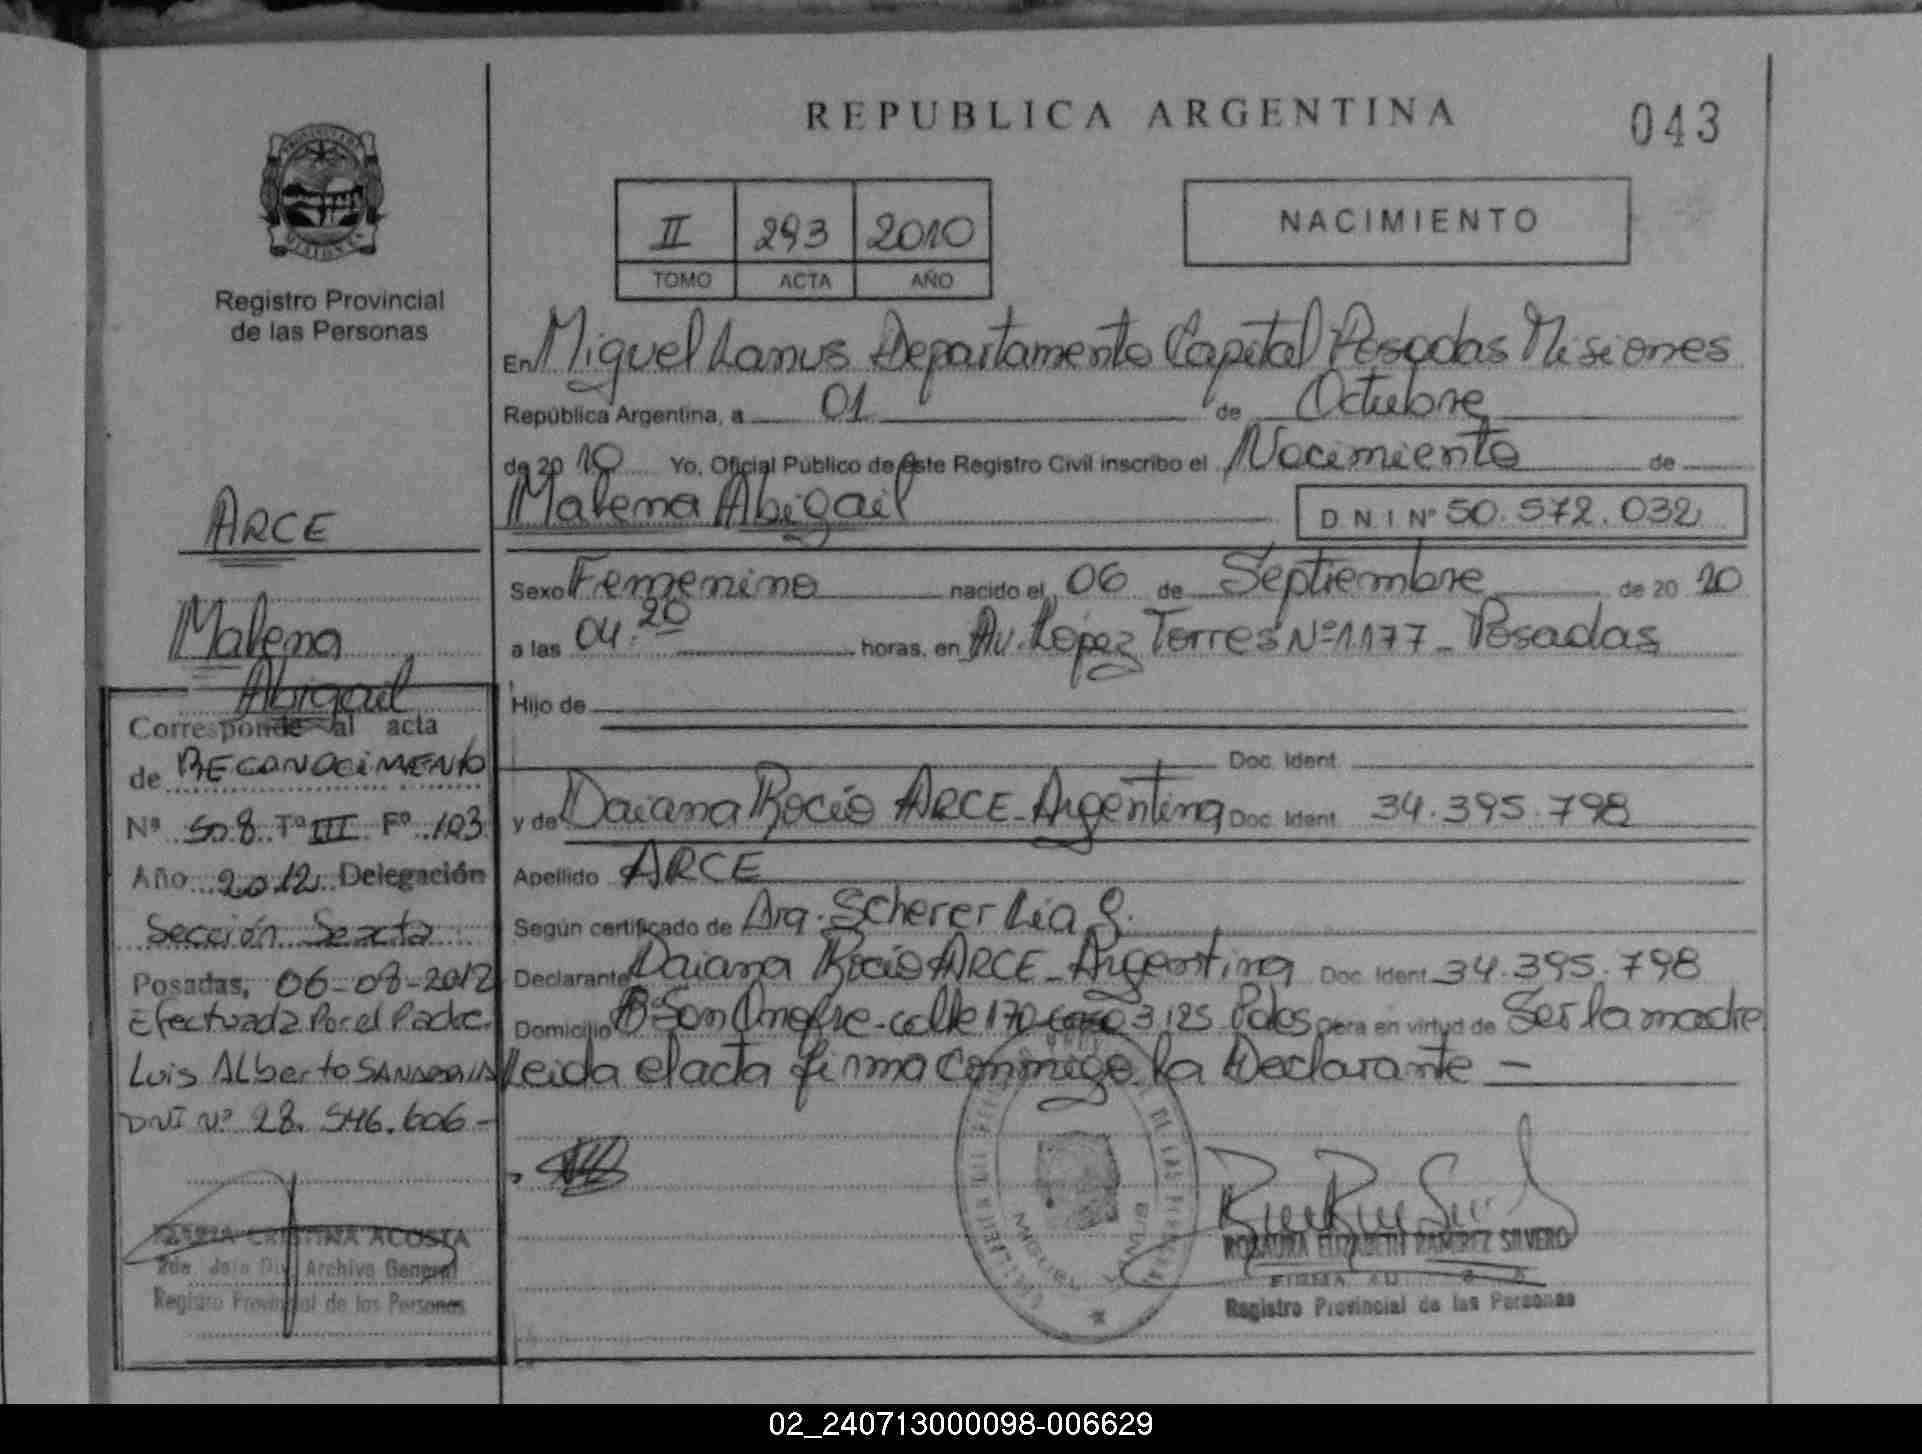 REPUBLICA ARGENTINA
043
II 293 2010
TOMO ACTA AÑO
NACIMIENTO
Registro Provincial
de las Personas
En Miguel Lanus Departamento Capital Posadas Misiones
República Argentina, a 01 de Octubre
de 20 10 Yo, Oficial Público de este Registro Civil inscribo el Nacimiento de
Malena Abigail
D N I Nº 50.572.032
Sexo Femenino nacido el 06 de Septiembre de 20 10
a las 04:20 horas, en Av. López Torres Nº 1177 - Posadas
Hijo de
Doc. Ident.
y de Daiana Rocío ARCE - Argentina Doc. Ident. 34.395.798
Apellido ARCE
Según certificado de Dra. Scherer Lia
Declarante Daiana Rocío ARCE - Argentina Doc. Ident. 34.395.798
Domicilio Bº San Onofre - calle 170 3125 Pdas Opera en virtud de Ser la madre
Leida el acta firma conmigo la Declarante -
ROSAURA ELIZABETH RAMIREZ SILVERO
FIRMA
Registro Provincial de las Personas
ARCE
Malena
Abigail
Corresponde al acta
de RECONOCIMIENTO
Nº 508 Tº III Fº 103
Año 2012 Delegación
Sección Sexta
Posadas, 06-08-2012
Efectuada Por el Padre
Luis ALberto
DNI Nº 28.546.606 -
MARIA CRISTINA ACOSTA
2da. Jefa Div. Archivo General
Registro Provincial de las Personas
02_240713000098-006629